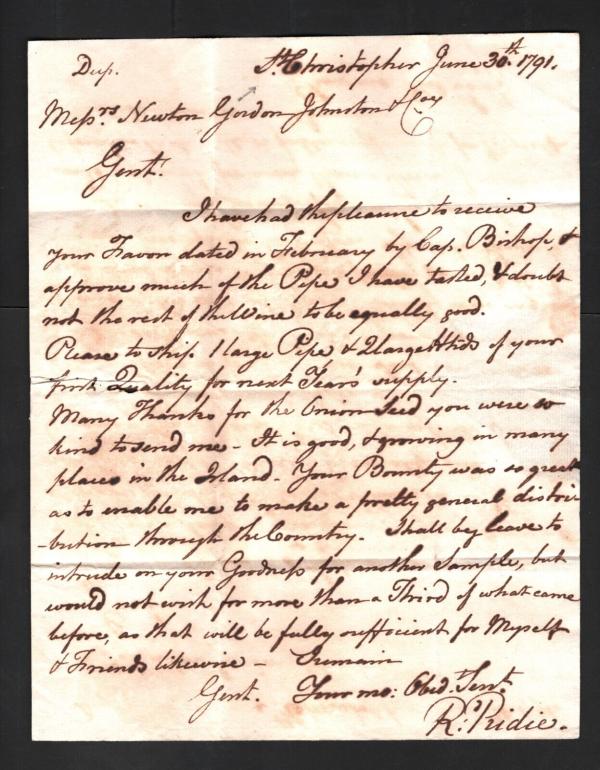 Dup. St. Christopher June 30th. 1791.
Messrs. Newton Gordon Johnston & Coy
Gent.
I have had the pleasure to receive
your Favor dated in February by Cap. Bishop, &
approve much of the Pipe I have tasted, & doubt
not the rest of the Wine to be equally good.
Please to ship 1 large Pipe & 2 large Hhds of your
first Quality for next Year's supply.
Many Thanks for the Onion Seed you were so
kind to send me - It is good, & growing in many
places in the Island - Your Bounty was so great
as to enable me to make a pretty general distri-
-bution through the Country. I shall beg leave to
intrude on your Goodness for another Sample, but
would not wish for more than a Third of what came
before, as that will be fully sufficient for Myself
& Friends likewise - I remain
Gent. Your mo: Obed. Sert.
R. Pridie.